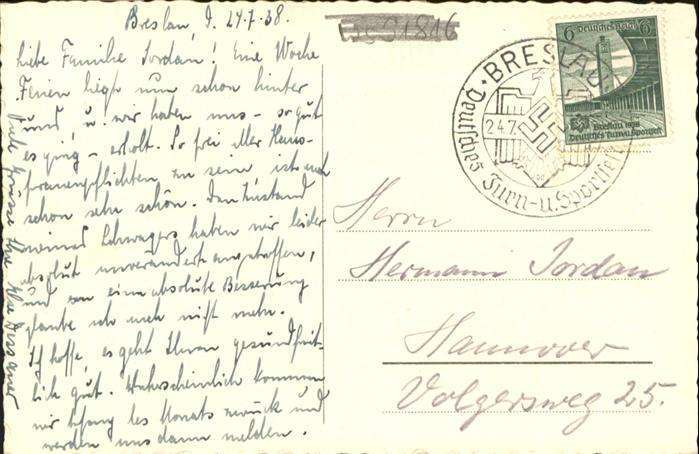 Breslau, d. 24.7.38.
Liebe Familie Jordan! Eine Woche
Ferien liegt nun schon hinter
uns, u. wir haben uns – so gut
es ging – erholt. So frei aller Haus-
frauenpflichten zu sein, ist auch
schon sehr schön. Den Zustand
meines Schwagers haben wir leider
absolut unverändert angetroffen,
und an eine absolute Besserung
glaube ich auch nicht mehr.
Ich hoffe, es geht Ihnen gesundheit-
lich gut. Wahrscheinlich kommen
wir Anfang des Monats zurück und
werden uns dann melden.
Grüsse Ihre
BRESLAU
Deutsches Turn-u. Sportfest
24.7.
Deutsches Reich
6 6
Breslau 1938
Deutsches Turn u. Sportfest
Herrn
Hermann Jordan
Hannover
Volgersweg 25.